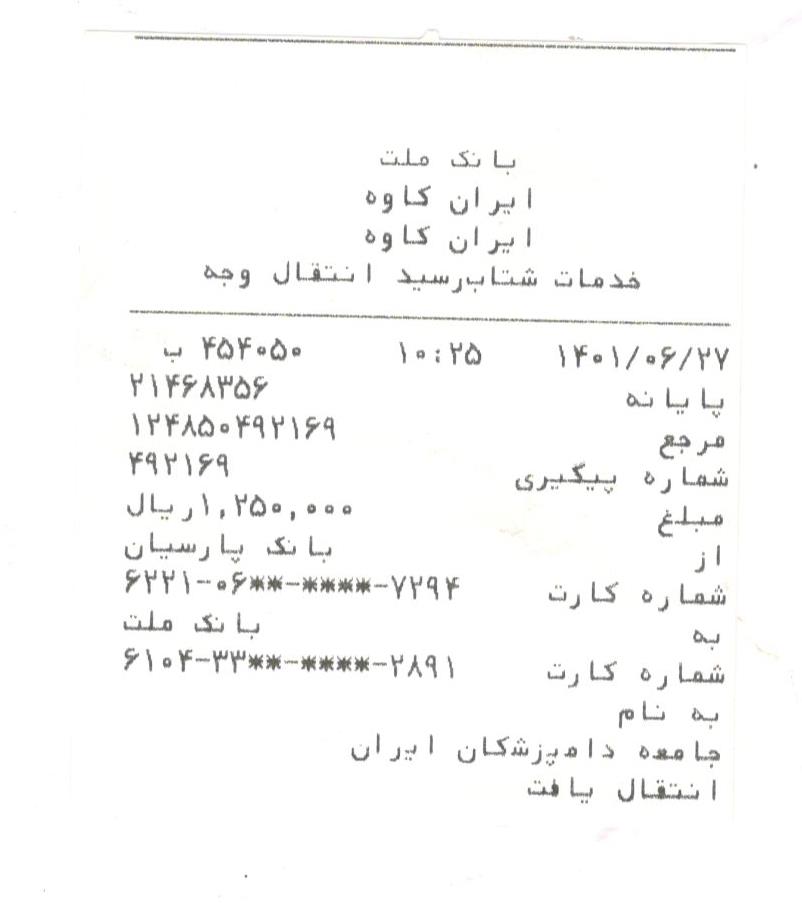 بانک ملت
ایران کاوه
ایران کاوه
خدمات شتاب‌رسید انتقال وجه
۱۴۰۱/۰۶/۲۷ ۱۰:۲۵ ۴۵۴۰۵۰ ب
پایانه ۲۱۴۶۸۳۵۶
مرجع ۱۲۴۸۵۰۴۹۲۱۶۹
شماره پیگیری ۴۹۲۱۶۹
مبلغ ۱,۲۵۰,۰۰۰ریال
از بانک پارسیان
شماره کارت ۶۲۲۱-۰۶**-****-۷۲۹۴
به بانک ملت
شماره کارت ۶۱۰۴-۳۳**-****-۲۸۹۱
به نام
جامعه دامپزشکان ایران
انتقال یافت